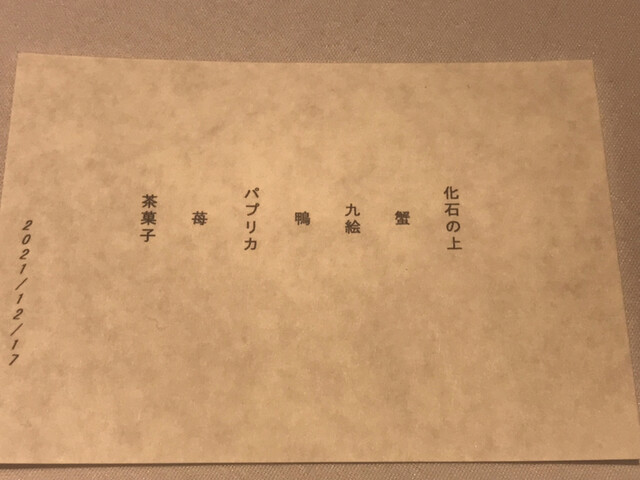 化石の上
蟹
九絵
鴨
パプリカ
苺
茶菓子
2021/12/17